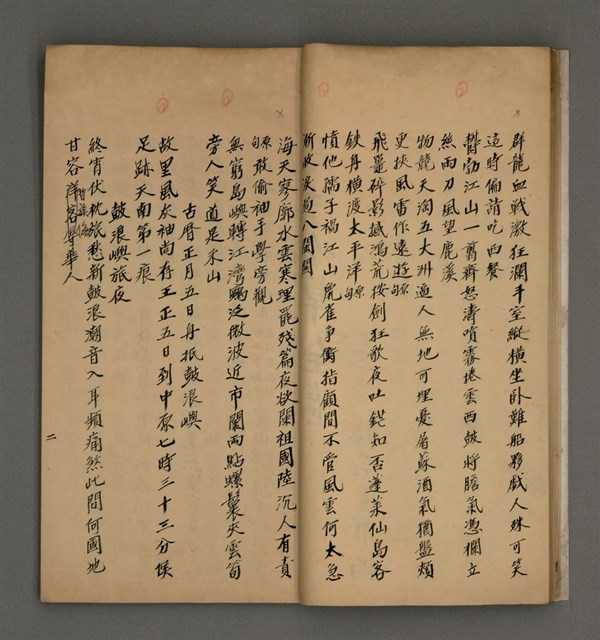 群龍血戰激狂瀾斗室縱橫坐卧難船夥戲人殊可笑
這時偏請吃西餐
欝勃江山一剪齊怒濤噴霧捲雲西皷將膽氣憑欄立
絲雨刀風望鹿溪
物競天淘五大洲過人無地可埋憂屠蘇酒氣猶盤頰
更挾風雷作遠遊
飛鼉碎影撼鴻荒按劍狂歌夜吐鋩知否蓬萊仙島客
鉄舟橫渡太平洋
憤他隅子禍江山虎雀爭衡指顧間不管風雲何太急
漸收淚過八關關
海天寥廓水雲寒理罷殘篇夜欲闌祖國陸沉人有責
敢偷袖手學旁觀
無窮島嶼轉江灣鷗泛微波近市闤兩點螺鬟夾雲荀
旁人笑道是禾山
古曆正月五日舟抵鼓浪嶼
故里風灰袖尚存王正五日到中原七時三十三分候
足跡天南第一痕
鼓浪嶼旅夜
終宵伏枕旅愁新鼓浪潮音入耳頻痛煞此間何國地
甘容洋客華人
二